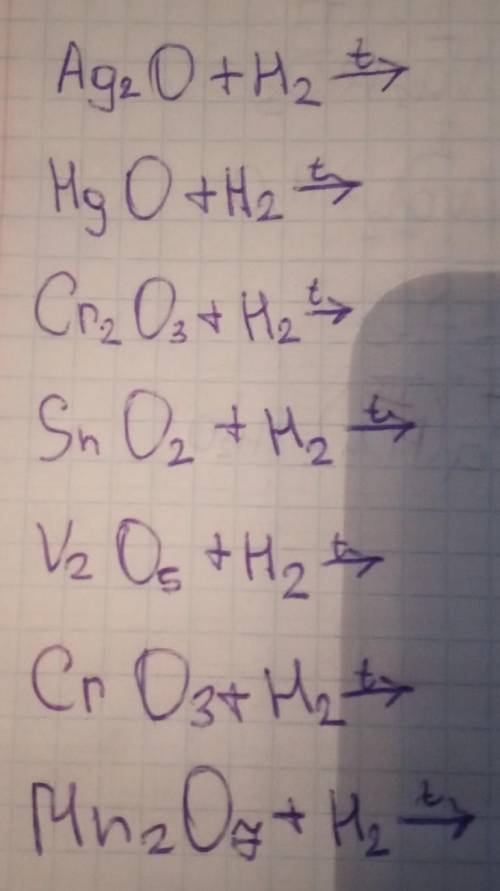 Ag₂O + H₂ →t
HgO + H₂ →t
Cr₂O₃ + H₂ →t
SnO₂ + H₂ →t
V₂O₅ + H₂ →t
CrO₃ + H₂ →t
Mn₂O₇ + H₂ →t